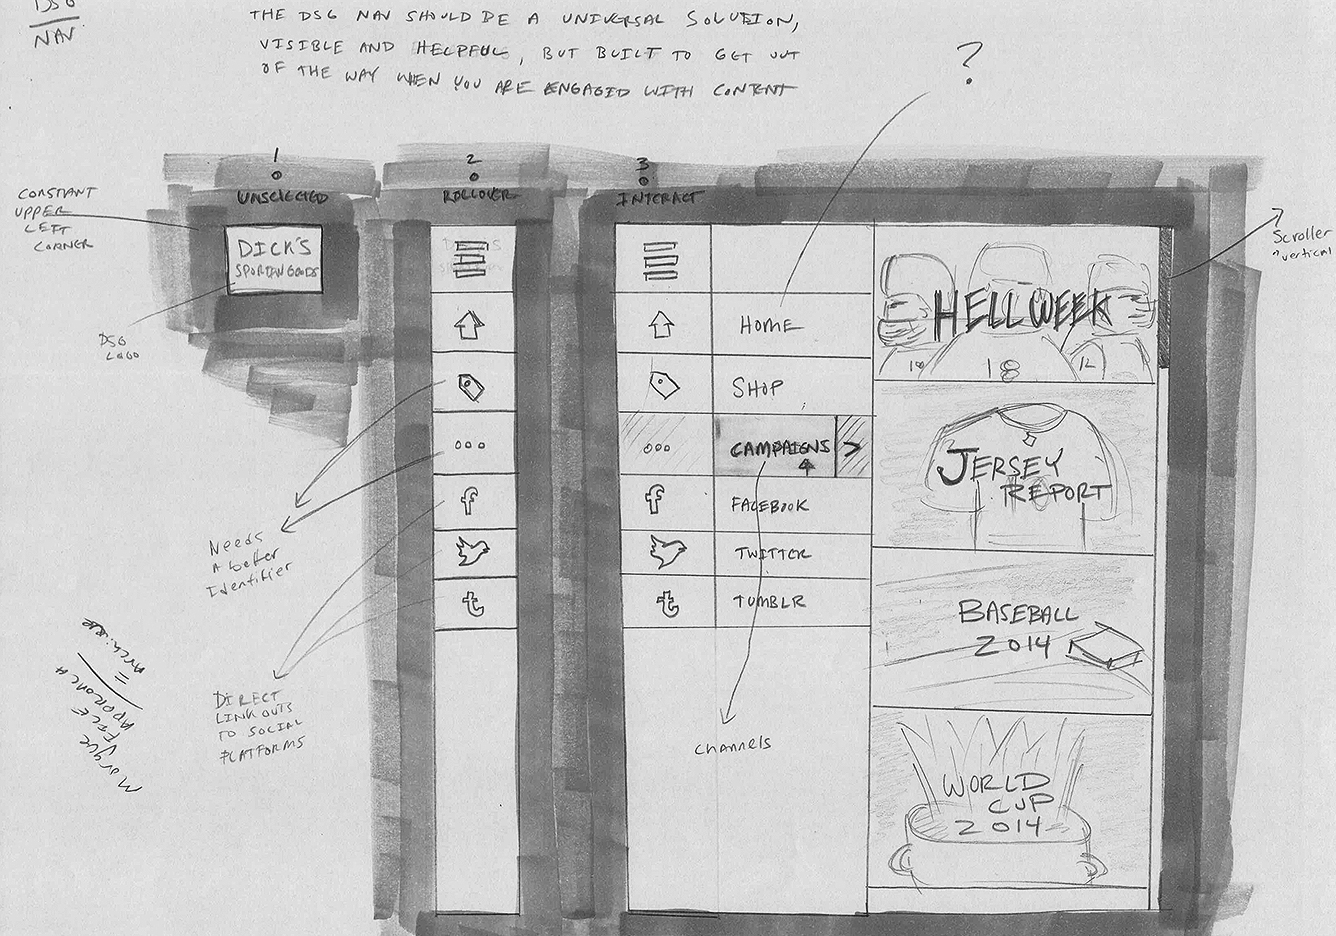 DSG
NAV
THE DSG NAV SHOULD BE A UNIVERSAL SOLUTION,
VISIBLE AND HELPFUL, BUT BUILT TO GET OUT
OF THE WAY WHEN YOU ARE ENGAGED WITH CONTENT
?
1
UNSELECTED
2
ROLLOVER
3
INTERACT
CONSTANT
UPPER
LEFT
CORNER
DICK'S
SPORTING GOODS
DSG
LOGO
HOME
SHOP
CAMPAIGNS >
FACEBOOK
TWITTER
TUMBLR
f
t
f
t
HELL WEEK
18
18
12
JERSEY
REPORT
BASEBALL
2014
WORLD
CUP
2014
Scroller
vertical
Needs
A better
Identifier
DIRECT
LINK OUTS
TO SOCIAL
PLATFORMS
channels
APPROACH